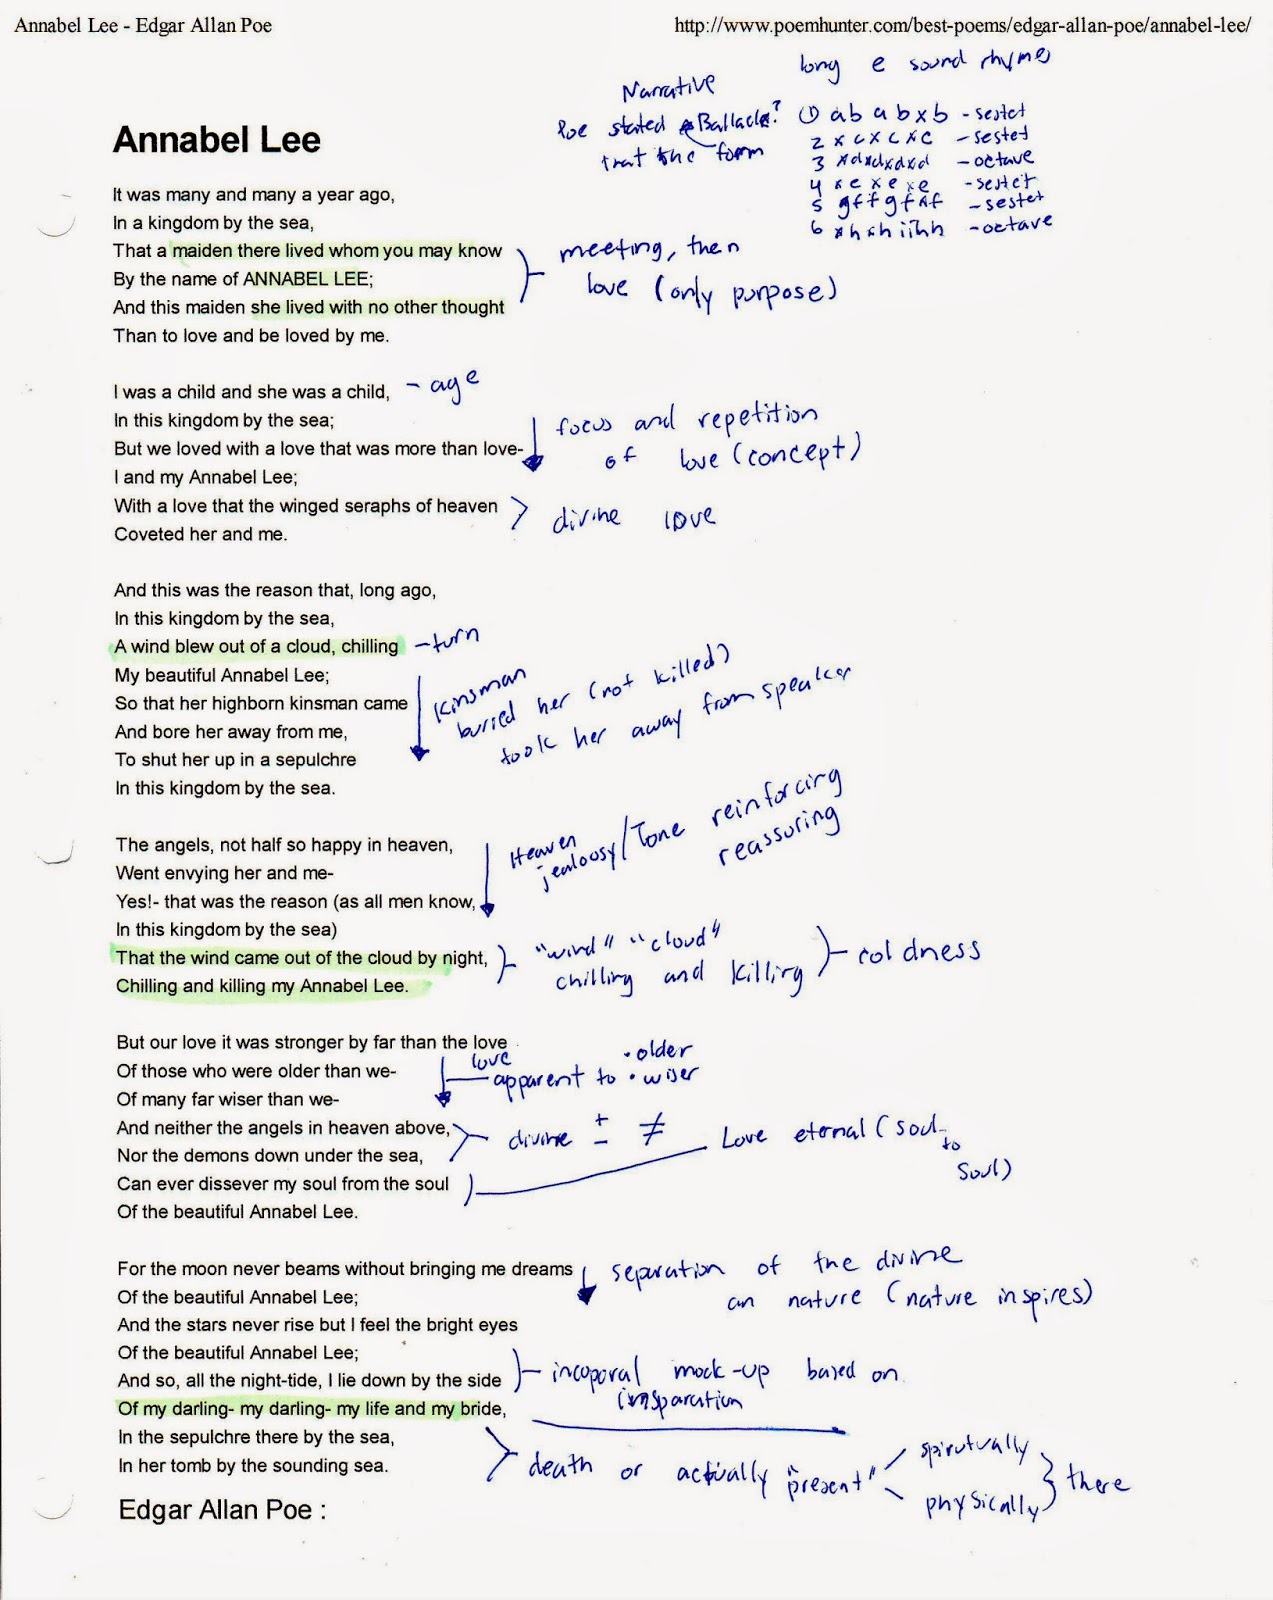 Annabel Lee - Edgar Allan Poe
http://www.poemhunter.com/best-poems/edgar-allan-poe/annabel-lee/
long e sound rhymes
Narrative
Poe stated Ballade?
that the form
① a b a b x b - sestet
2 x c x c x c - sestet
3 xdxdxdxd - octave
4 x e x e x e - sestet
5 gffgfxf - sestet
6 xhxhiihh - octave
Annabel Lee
It was many and many a year ago,
In a kingdom by the sea,
That a maiden there lived whom you may know
By the name of ANNABEL LEE;
And this maiden she lived with no other thought
Than to love and be loved by me.
meeting, then
love (only purpose)
I was a child and she was a child, - age
In this kingdom by the sea;
But we loved with a love that was more than love-
I and my Annabel Lee;
With a love that the winged seraphs of heaven
Coveted her and me.
focus and repetition
of love (concept)
divine love
And this was the reason that, long ago,
In this kingdom by the sea,
A wind blew out of a cloud, chilling - turn
My beautiful Annabel Lee;
So that her highborn kinsman came
And bore her away from me,
To shut her up in a sepulchre
In this kingdom by the sea.
Kinsman
buried her (not killed)
took her away from speaker
The angels, not half so happy in heaven,
Went envying her and me-
Yes!- that was the reason (as all men know,
In this kingdom by the sea)
That the wind came out of the cloud by night,
Chilling and killing my Annabel Lee.
Heaven
jealousy / Tone reinforcing
reassuring
"wind" "cloud"
chilling and killing
coldness
But our love it was stronger by far than the love
Of those who were older than we-
Of many far wiser than we-
And neither the angels in heaven above,
Nor the demons down under the sea,
Can ever dissever my soul from the soul
Of the beautiful Annabel Lee.
love
apparent to
• older
• wiser
divine + - ≠
Love eternal (soul
to
soul)
For the moon never beams without bringing me dreams
Of the beautiful Annabel Lee;
And the stars never rise but I feel the bright eyes
Of the beautiful Annabel Lee;
And so, all the night-tide, I lie down by the side
Of my darling- my darling- my life and my bride,
In the sepulchre there by the sea,
In her tomb by the sounding sea.
separation of the divine
an nature (nature inspires)
incoporal mock-up based on
death or actually "present"
spirutually
physically
there
Edgar Allan Poe :